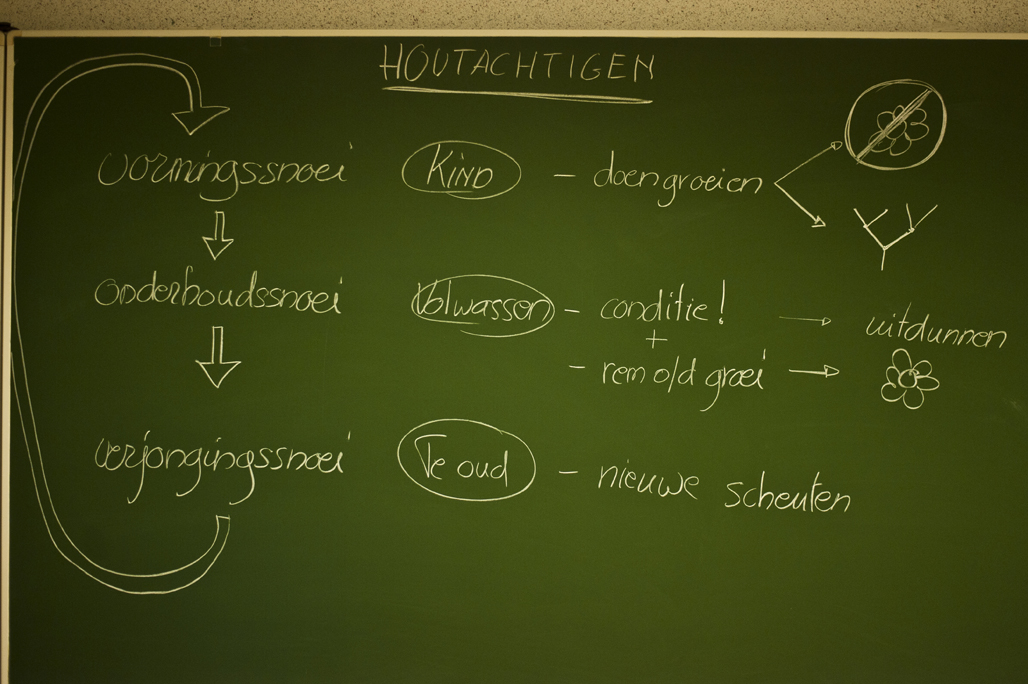 HOUTACHTIGEN
vormingssnoei KIND - doen groeien
onderhoudssnoei Volwassen - conditie! → uitdunnen
+
- rem o/d groei →
verjongingssnoei Te oud - nieuwe scheuten